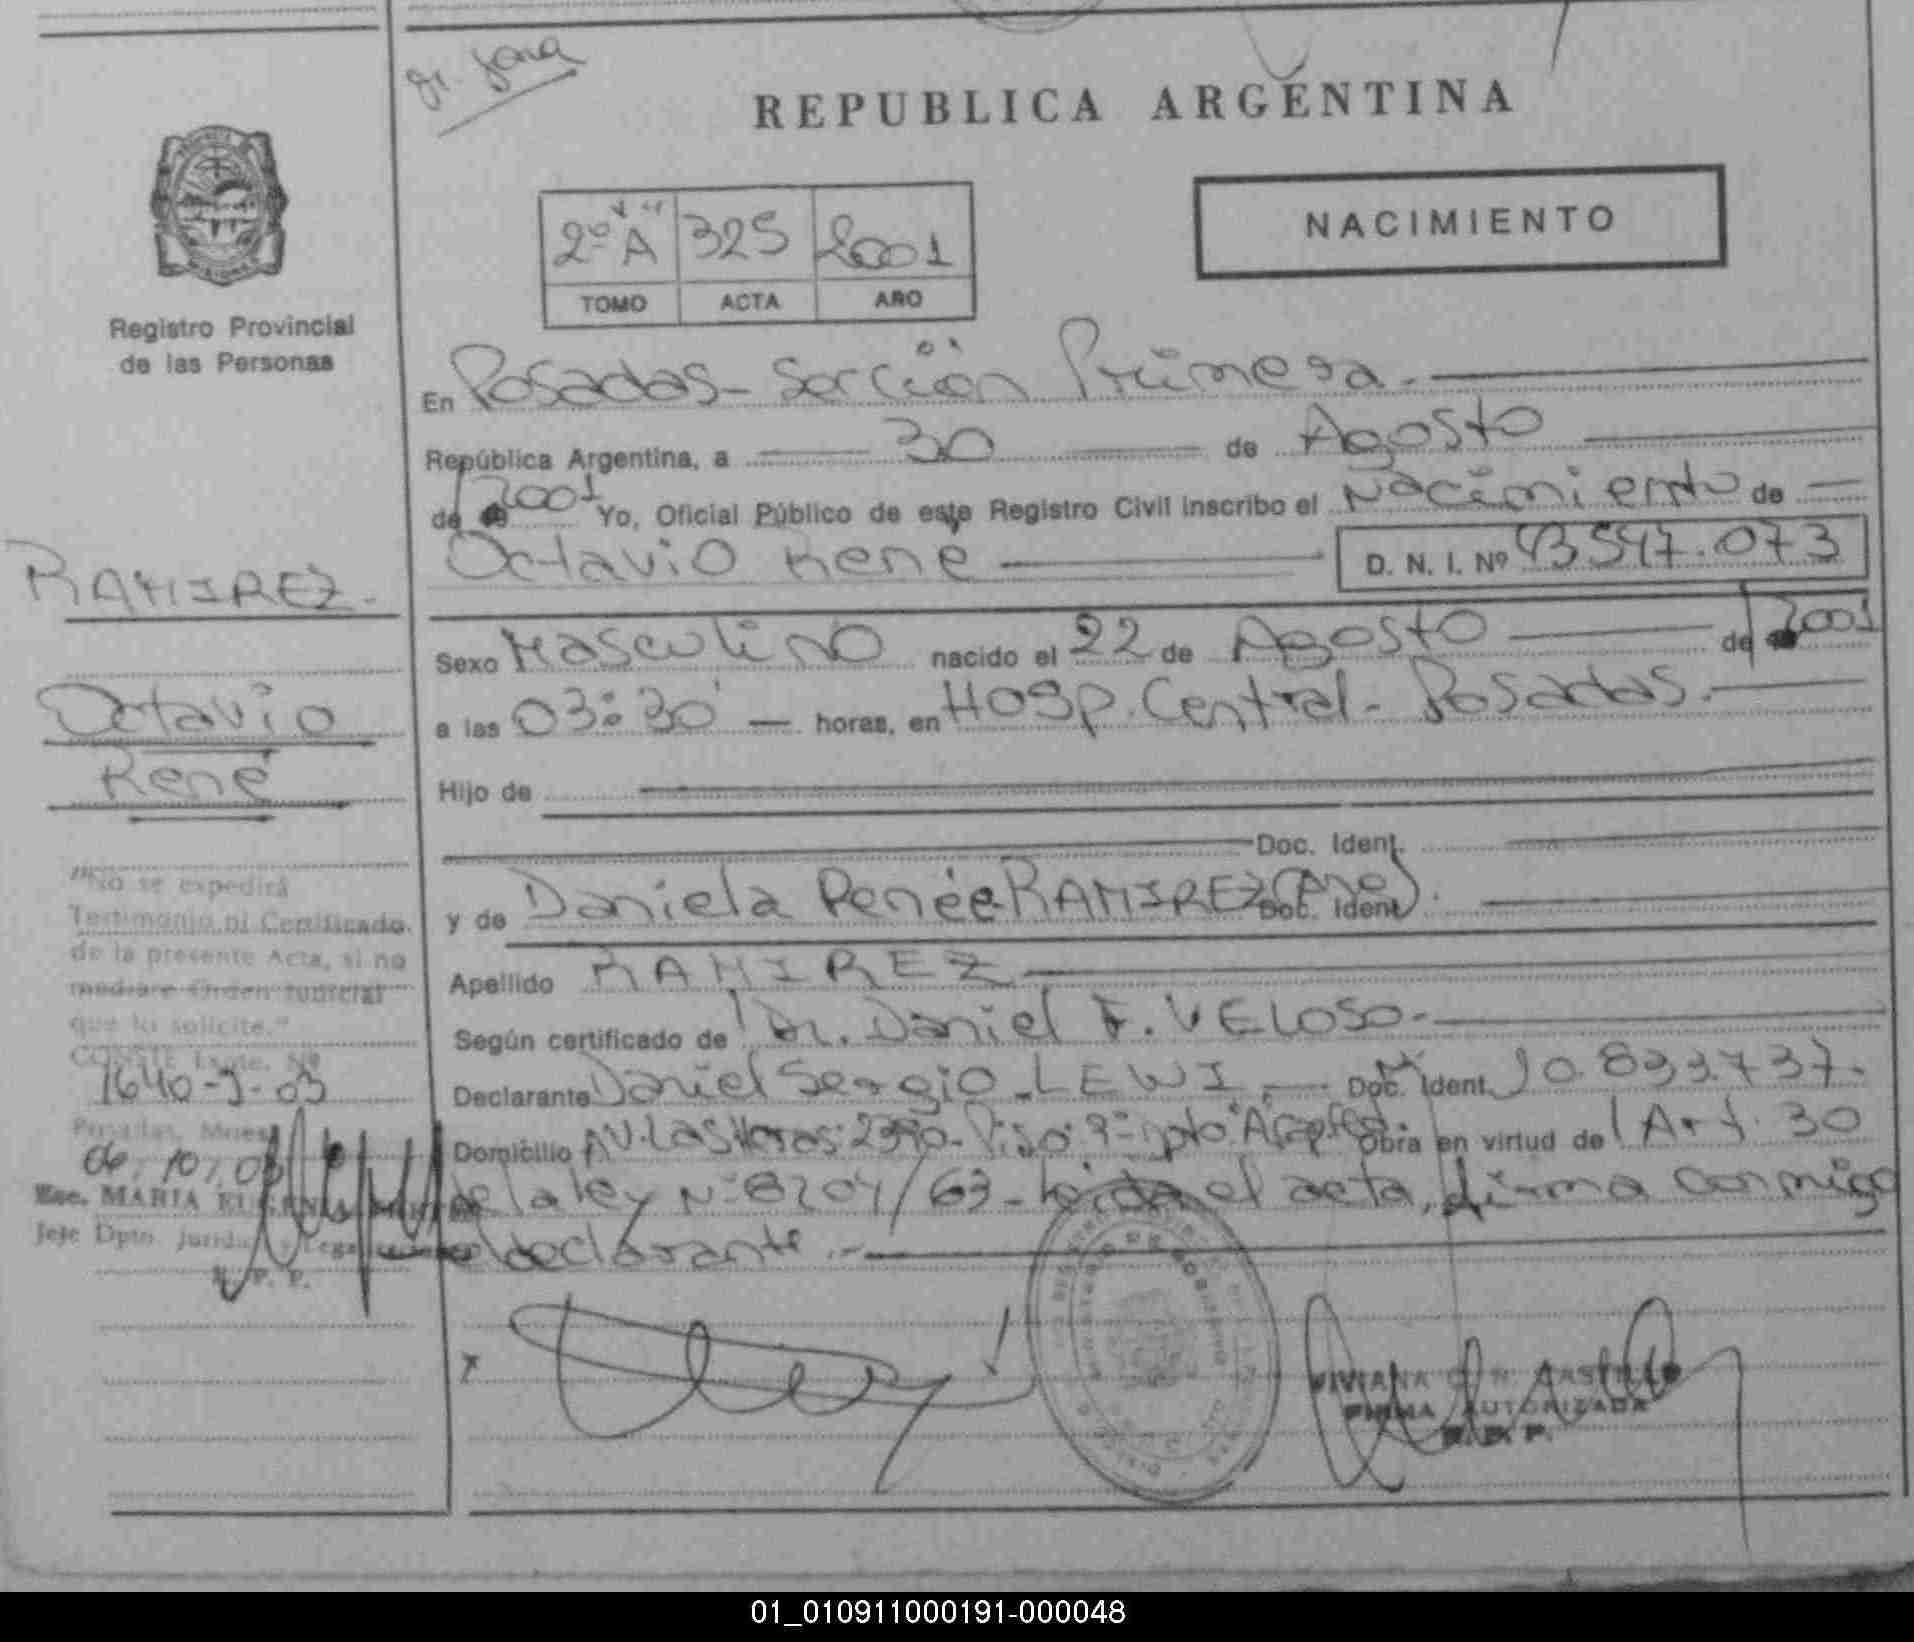 REPUBLICA ARGENTINA
2º "A" 325 2001
TOMO ACTA AÑO
NACIMIENTO
Registro Provincial
de las Personas
En Posadas - Sección Primera.
República Argentina, a 30 de Agosto
de 2001 Yo, Oficial Público de este Registro Civil inscribo el Nacimiento de
Octavio René D. N. I. Nº 43547.073
RAMIREZ.
Octavio
René
Sexo Masculino nacido el 22 de Agosto de 2001
a las 03:30 horas, en Hosp. Central - Posadas.
Hijo de
Doc. Ident.
y de Daniela Renée RAMIREZ Doc. Ident
Apellido RAMIREZ
Según certificado de Dr. Daniel F. VELOSO.
Declarante Daniel Sergio LEWI. Doc. Ident. 10.833.737.
Domicilio Av. Las Heras: 2390 - Piso: 9 Obra en virtud de Art. 30
de la ley Nº 8204/63 - leída el acta, firma conmigo
el declarante.
"No se expedirá
Testimonio ni Certificado
de la presente Acta, si no
mediare Orden Judicial
que lo solicite."
CONSTE Expte. Nº
1640-J-03
Posadas, Mnes
06/10/03
Esc. MARIA EUGENIA
Jefe Dpto. Jurídico y Legal
R. P. P.
VIVIANA CASTILLO
FIRMA AUTORIZADA
R. P. P.
01_010911000191-000048